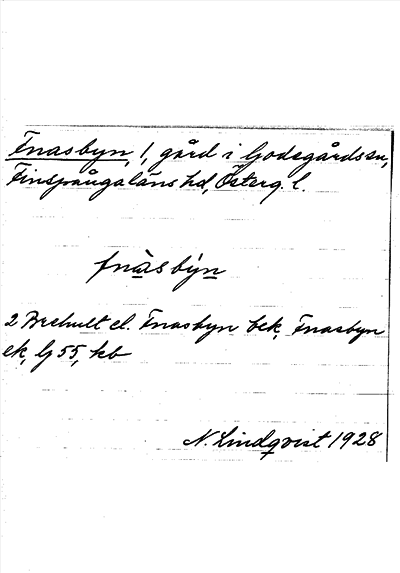 Fnasbyn, 1, gård i Godegårds sn,
Finspångaläns hd, Österg. l.
fnàsby̆n
2 Brehult el. Fnasbyn bek, Fnasbyn
ek, Gj 55, kb
N. Lindqvist 1928